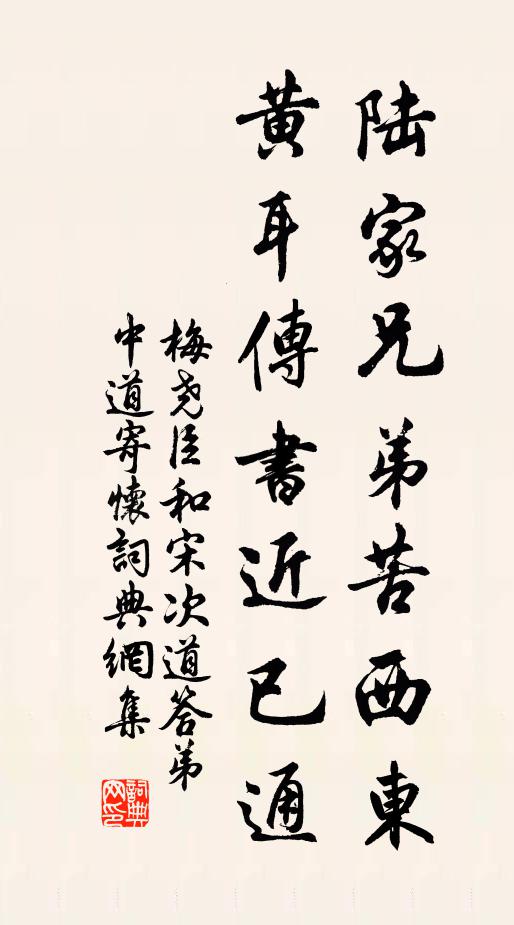 陆家兄弟苦西東
黄耳傳書近已通
梅尧臣和宋次道答弟
中道寄懷詞典網集
詞典
网印